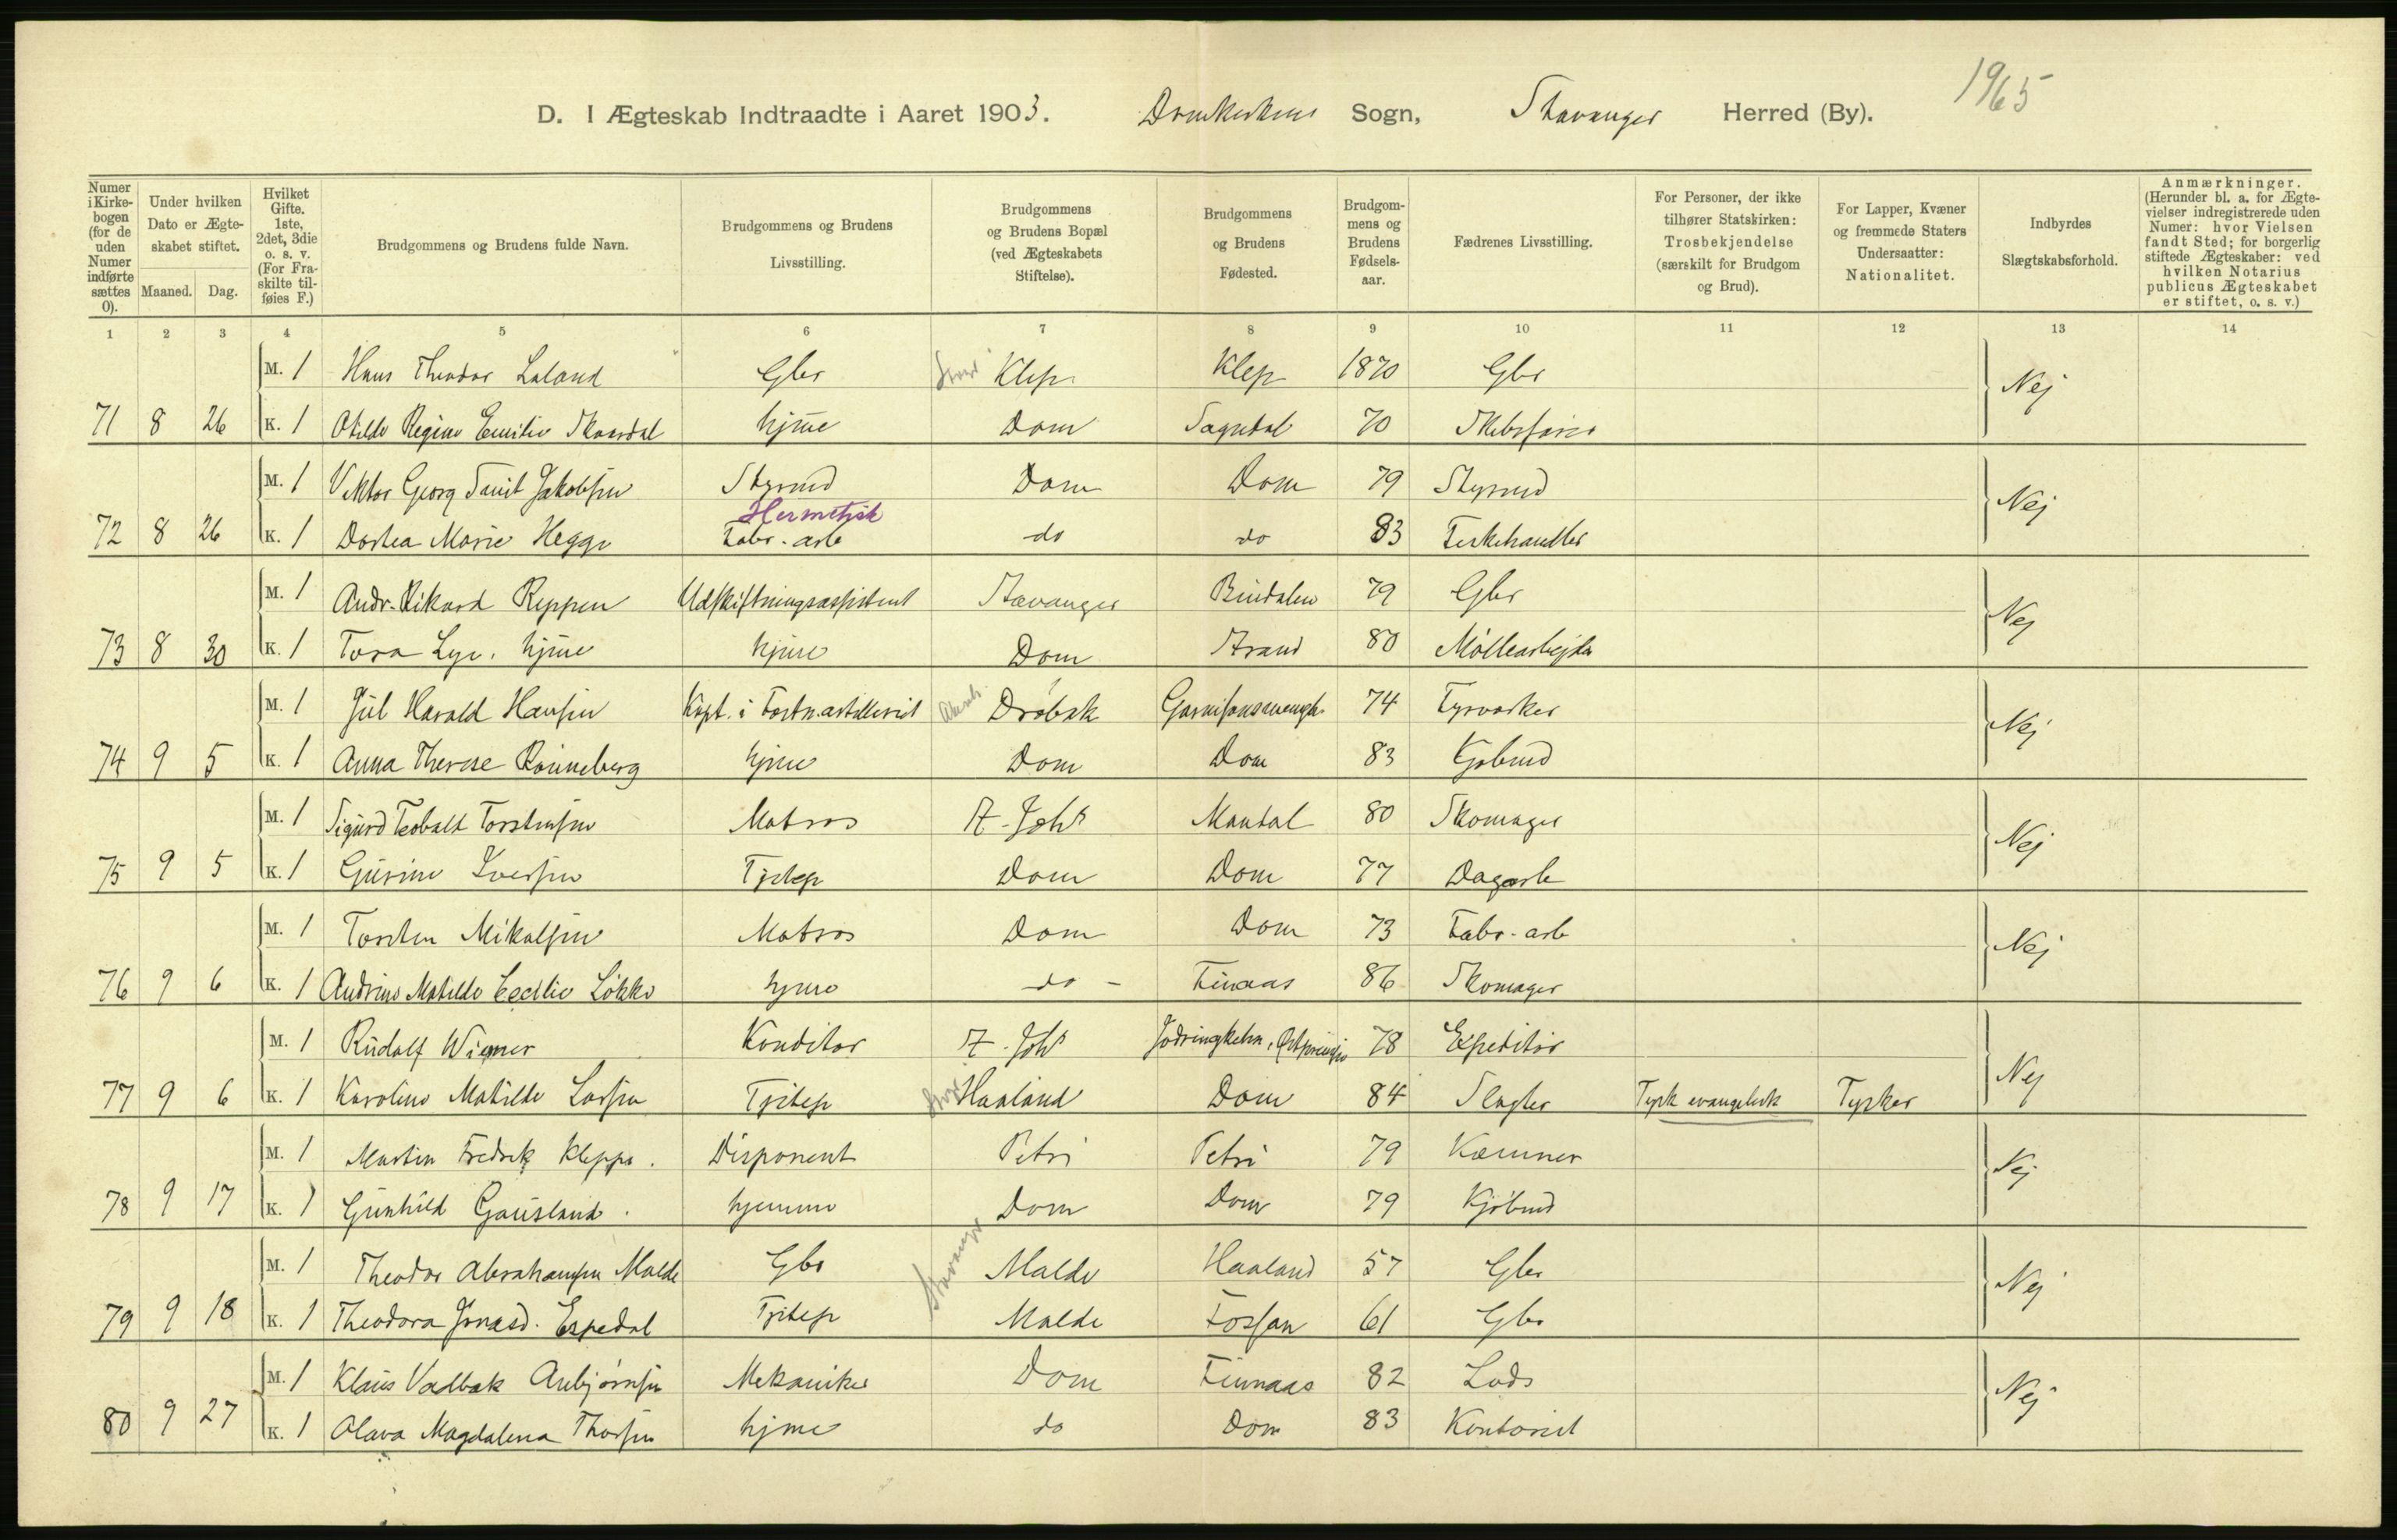 1965
D. I Ægteskab Indtraadte i Aaret 1903. Domkirkens Sogn, Stavanger Herred (By).
Numer i Kirke-bogen (for de uden Numer indførte sættes 0). | Under hvilken Dato er Ægte-skabet stiftet. Maaned. Dag. | Hvilket Gifte. 1ste, 2det, 3die o. s. v. (For Fra-skilte til-føies F.) | Brudgommens og Brudens fulde Navn. | Brudgommens og Brudens Livsstilling. | Brudgommens og Brudens Bopæl (ved Ægteskabets Stiftelse). | Brudgommens og Brudens Fødested. | Brudgom-mens og Brudens Fødsels-aar. | Fædrenes Livsstilling. | For Personer, der ikke tilhører Statskirken: Trosbekjendelse (særskilt for Brudgom og Brud). | For Lapper, Kvæner og fremmede Staters Undersaatter: Nationalitet. | Indbyrdes Slægtskabsforhold. | Anmærkninger. (Herunder bl. a. for Ægte-vielser indregistrerede uden Numer: hvor Vielsen fandt Sted; for borgerlig stiftede Ægteskaber: ved hvilken Notarius publicus Ægteskabet er stiftet, o. s. v.)
1 2 3 4 5 6 7 8 9 10 11 12 13 14
M. 1 Hans Theodor Laland Gbr Klep Klep 1870 Gbr Nej
71 8 26 K. 1 Otilde Regine Emilie Skaardal hjme Dom Sogndal 70 Skibsfører
M. 1 Viktor Georg Tanit Jakobsen Styrmd Dom Dom 79 Styrmd Nej
Hermetisk
72 8 26 K. 1 Dortea Marie Hegge Fabr. arb do do 83 Fiskehandler
M. 1 Andr. Rikard Reppen Udskiftningsassistent Stavanger Bindalen 79 Gbr Nej
73 8 30 K. 1 Tora Lye. hjme hjme Dom Strand 80 Møllearbejder
M. 1 Jul Harald Hansen Kapt. i Festn.artilleriet Drøbak 74 Fyrvorker Nej
74 9 5 K. 1 Anna Therese Rønneberg hjme Dom Dom 83 Kjøbmd
M. 1 Sigurd Teobalt Torstensen Matros St. Joh's Mandal 80 Skomager Nej
75 9 5 K. 1 Gurine Iversen Tjitep Dom Dom 77 Dagarb
M. 1 Torsten Mikalsen Matros Dom Dom 73 Fabr. arb Nej
76 9 6 K. 1 Andrine Matilde Cecilie Løkke hjme do - Finaas 86 Skomager
M. 1 Rudolf Wiemer Konditor St. Joh's 78 Expeditør Nej
77 9 6 K. 1 Karoline Matilde Larsen Tjitep Haaland Dom 84 Slagter Tysk evangelisk Tysker
M. 1 Martin Fredrik Kleppe. Disponent Petri Petri 79 Kæmner Nej
78 9 17 K. 1 Gunhild Gausland. hjemme Dom Dom 79 Kjøbmd
M. 1 Theodor Abrahamsen Malde Gbr Stavanger Malde Haaland 57 Gbr Nej
79 9 18 K. 1 Theodora Jonasd. Espedal Tjitep Malde Fossan 61 Gbr
M. 1 Klaus Vadbak Anbjørnsen Mekaniker Dom Finnaas 82 Lods Nej
80 9 27 K. 1 Olava Magdalena Thorsen hjme do Dom 83 Kontorist